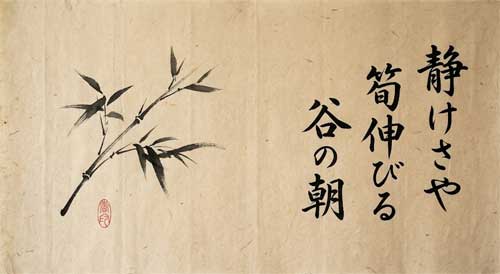 静けさや
筍伸びる
谷の朝